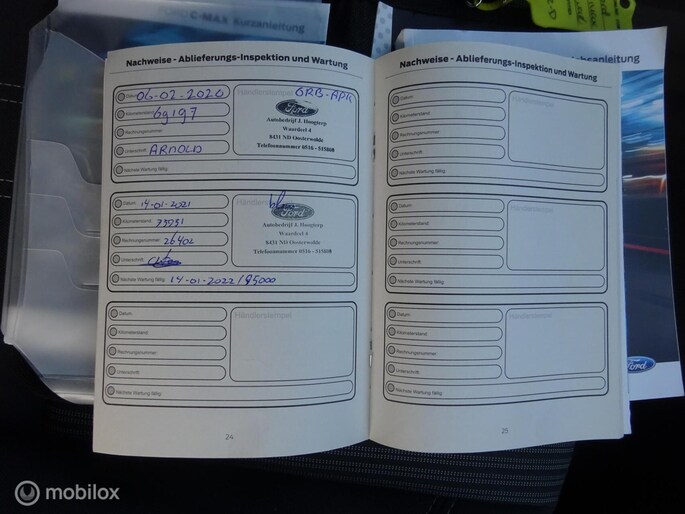 C-MAX Kurzanleitung
Nachweise - Ablieferungs-Inspektion und Wartung
Datum 06-02-2020
Händlerstempel GRB-APK
Kilometerstand 69197
Rechnungsnummer
Unterschrift ARNOLD
Nächste Wartung fällig:
Ford
Autobedrijf J. Hoogterp
Waardeel 4
8431 ND Oosterwolde
Telefoonnummer 0516 - 515808
Datum 14-01-2021
Händlerstempel
Kilometerstand 73931
Rechnungsnummer 26402
Unterschrift
Nächste Wartung fällig: 14-01-2022/95000
Ford
Autobedrijf J. Hoogterp
Waardeel 4
8431 ND Oosterwolde
Telefoonnummer 0516 - 515808
Datum
Händlerstempel
Kilometerstand
Rechnungsnummer
Unterschrift
Nächste Wartung fällig:
24
Nachweise - Ablieferungs-Inspektion und Wartung
Datum
Händlerstempel
Kilometerstand
Rechnungsnummer
Unterschrift
Nächste Wartung fällig:
Datum
Händlerstempel
Kilometerstand
Rechnungsnummer
Unterschrift
Nächste Wartung fällig:
Datum
Händlerstempel
Kilometerstand
Rechnungsnummer
Unterschrift
Nächste Wartung fällig:
25
Ford
mobilox